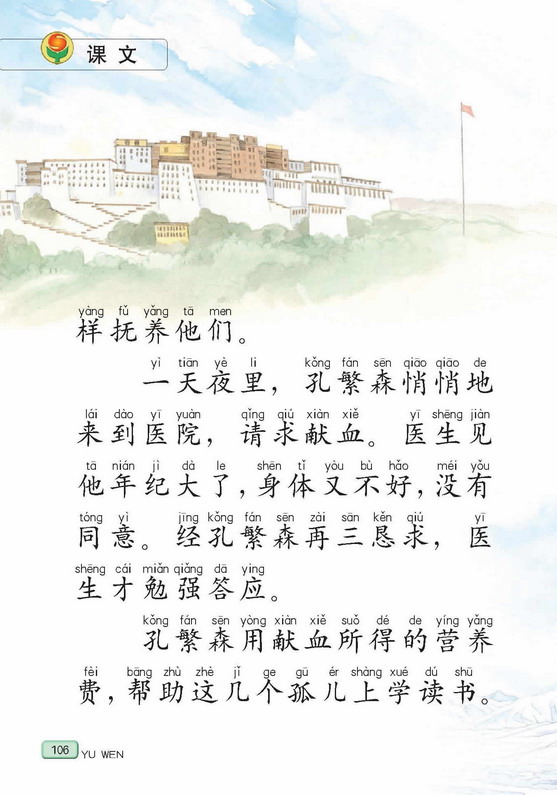 课文
yàng fǔ yǎng tā men
样抚养他们。
yì tiān yè li kǒng fán sēn qiāo qiāo de
一天夜里，孔繁森悄悄地
lái dào yī yuàn qǐng qiú xiàn xiě yī shēng jiàn
来到医院，请求献血。医生见
tā nián jì dà le shēn tǐ yòu bù hǎo méi yǒu
他年纪大了，身体又不好，没有
tóng yì jīng kǒng fán sēn zài sān kěn qiú yī
同意。经孔繁森再三恳求，医
shēng cái miǎn qiǎng dā ying
生才勉强答应。
kǒng fán sēn yòng xiàn xiě suǒ dé de yíng yǎng
孔繁森用献血所得的营养
fèi bāng zhù zhè jǐ ge gū ér shàng xué dú shū
费，帮助这几个孤儿上学读书。
106 YU WEN